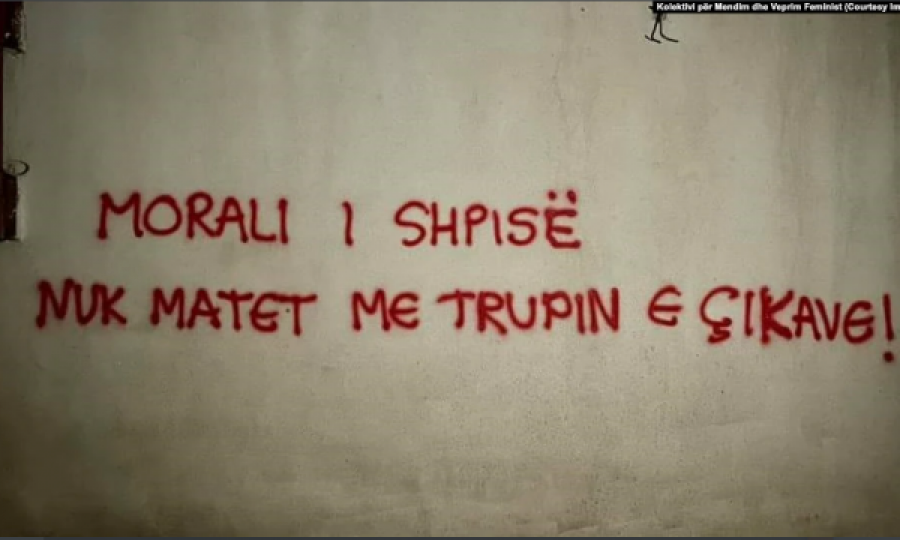 Kolektivi për Mendim dhe Veprim Feminist (Courtesy Im
MORALI I SHPISË
NUK MATET ME TRUPIN E ÇIKAVE!